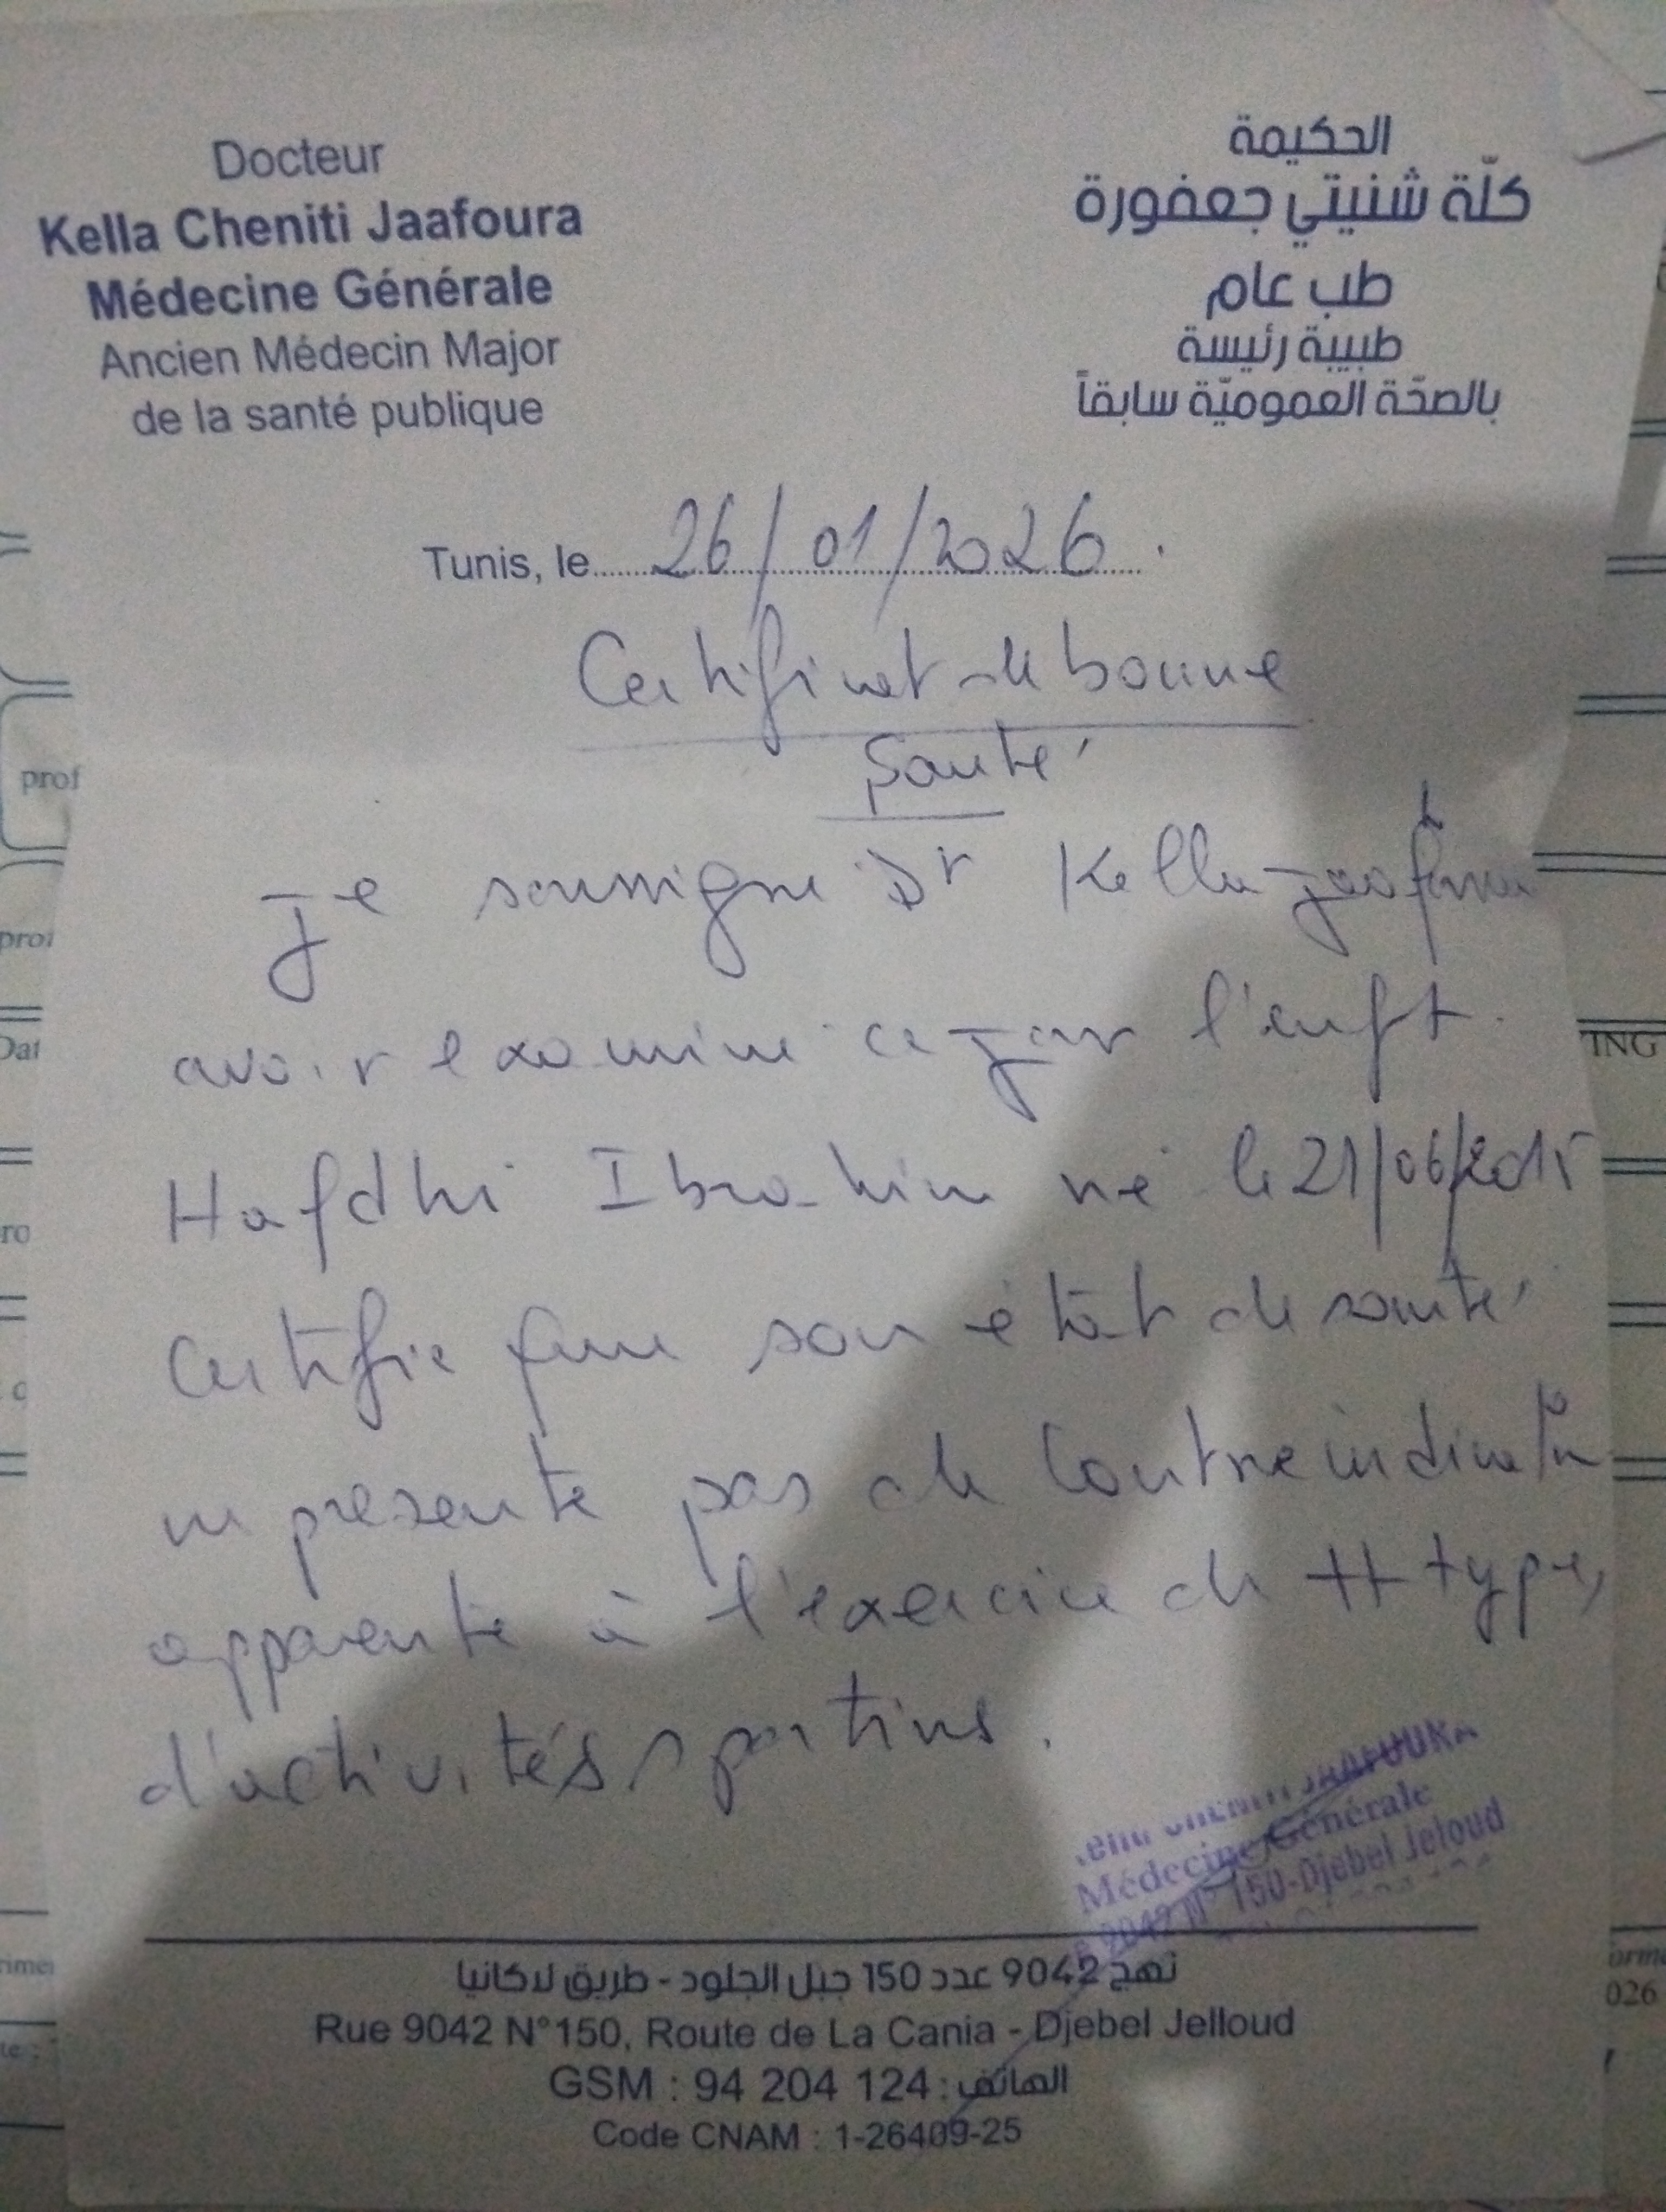 Docteur
Kella Cheniti Jaafoura
Médecine Générale
Ancien Médecin Major
de la santé publique
الحكيمة
كلّة شنيتي جعفورة
طب عام
طبيبة رئيسة
بالصحّة العموميّة سابقاً
Tunis, le 26/01/2026.
Certificat de bonne
Santé
Je soussigné Dr Kella Jaafoura
avoir examiné ce jour l'enft.
Hafdhi Ibrahim né le 21/06/2015
Certifie que son état de santé
ne présente pas de Contre indicatn
apparente à l'exercice de tt type,
d'activités sportives.
CHENITI JAAFOURA
Médecine Générale
9042 N° 150-Djebel Jeloud
نهج 9042 عدد 150 جبل الجلود - طريق لاكانيا
Rue 9042 N°150, Route de La Cania - Djebel Jelloud
GSM : 94 204 124 : الهاتف
Code CNAM : 1-26409-25
prof
prof
Dat
ro
c
ING
026